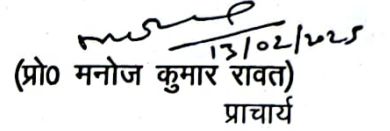 13/02/2025
(प्रो0 मनोज कुमार रावत)
प्राचार्य